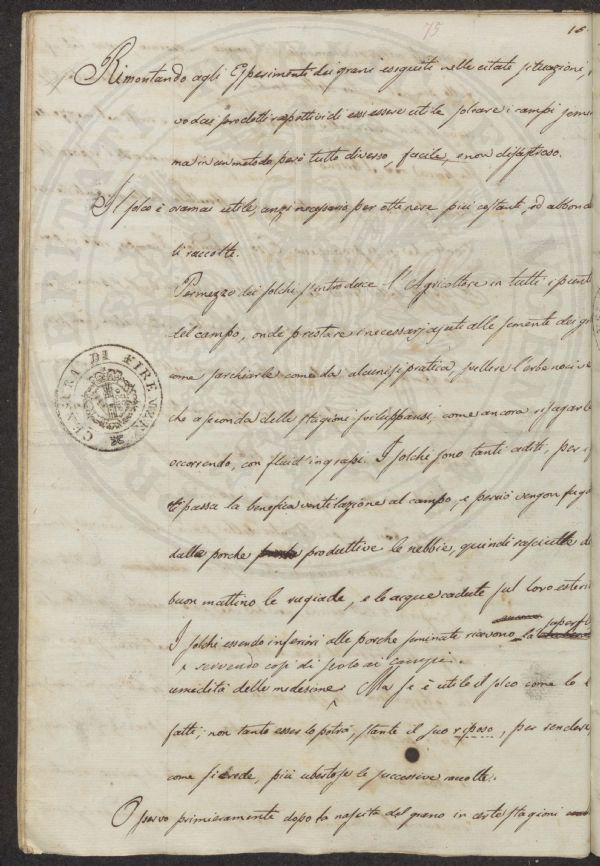 75
16
Rimontando agli Esperimenti dei grani eseguiti nelle citate situazioni,
vo dai prodotti rispettivi di essi essere utile solcare i campi
ma in un metodo però tutto diverso, facile, e non dispendioso.
Il solco è oramai utile, anzi necessario per ottenere più costanti, ed abbond
ti raccolte.
Per mezzo dei solchi s'introduce l'Agricoltore in tutti i punti
del campo, onde prestare i necessarj ajuti alle semente dei
come sarchiarle come da alcuni si pratica, svellere l'erbe nocive
che a seconda delle stagioni sviluppansi, come ancora
occorrendo, con fluidi ingrassi. I solchi sono tanti aditi, per
passa la benefica ventilazione al campo, e perciò vengon fuga
dalle porche produttive le nebbie, quindi rasciutte d
buon mattino le rugiade, e le acque cadute sul loro esteri
superfl
I solchi essendo inferiori alle porche seminate ricevono la
servendo così di scolo ai campi.
umidità delle medesime. Ma se è utile il solco come lo
fatti; non tanto esser lo potrà, stante il suo riposo, per rendere
come si crede, più ubertose le successive raccolte.
Osservo primieramente dopo la nascita del grano in certe stagioni
CENSURA DI FIRENZE